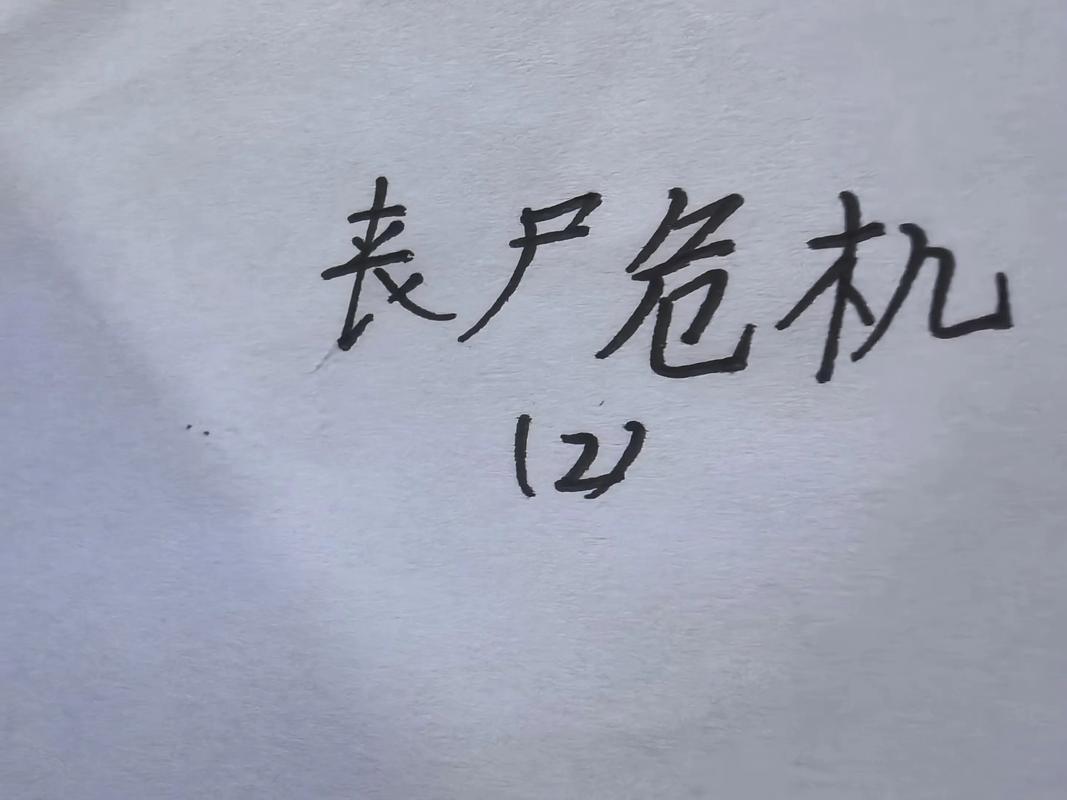 丧尸危机
(2)